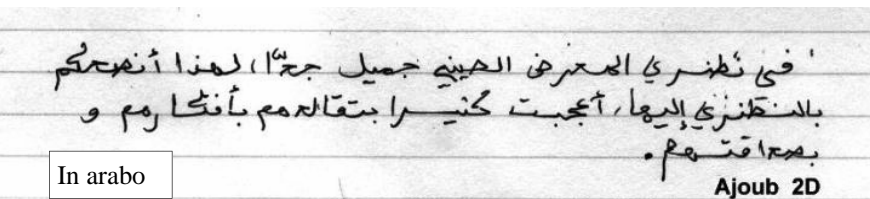 في نظري المعرض الصيني جميل جدّا، لهذا أنصحكم
بالنظري إليها، أعجبت كثيرا بتقالدهم بأفكارهم و
بصداقتهم.
In arabo
Ajoub 2D